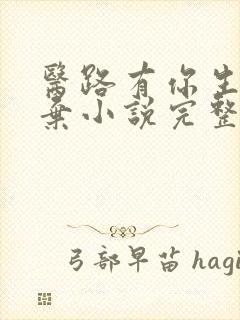 醫路有你生
棄小説完整
弓部早苗 hagi